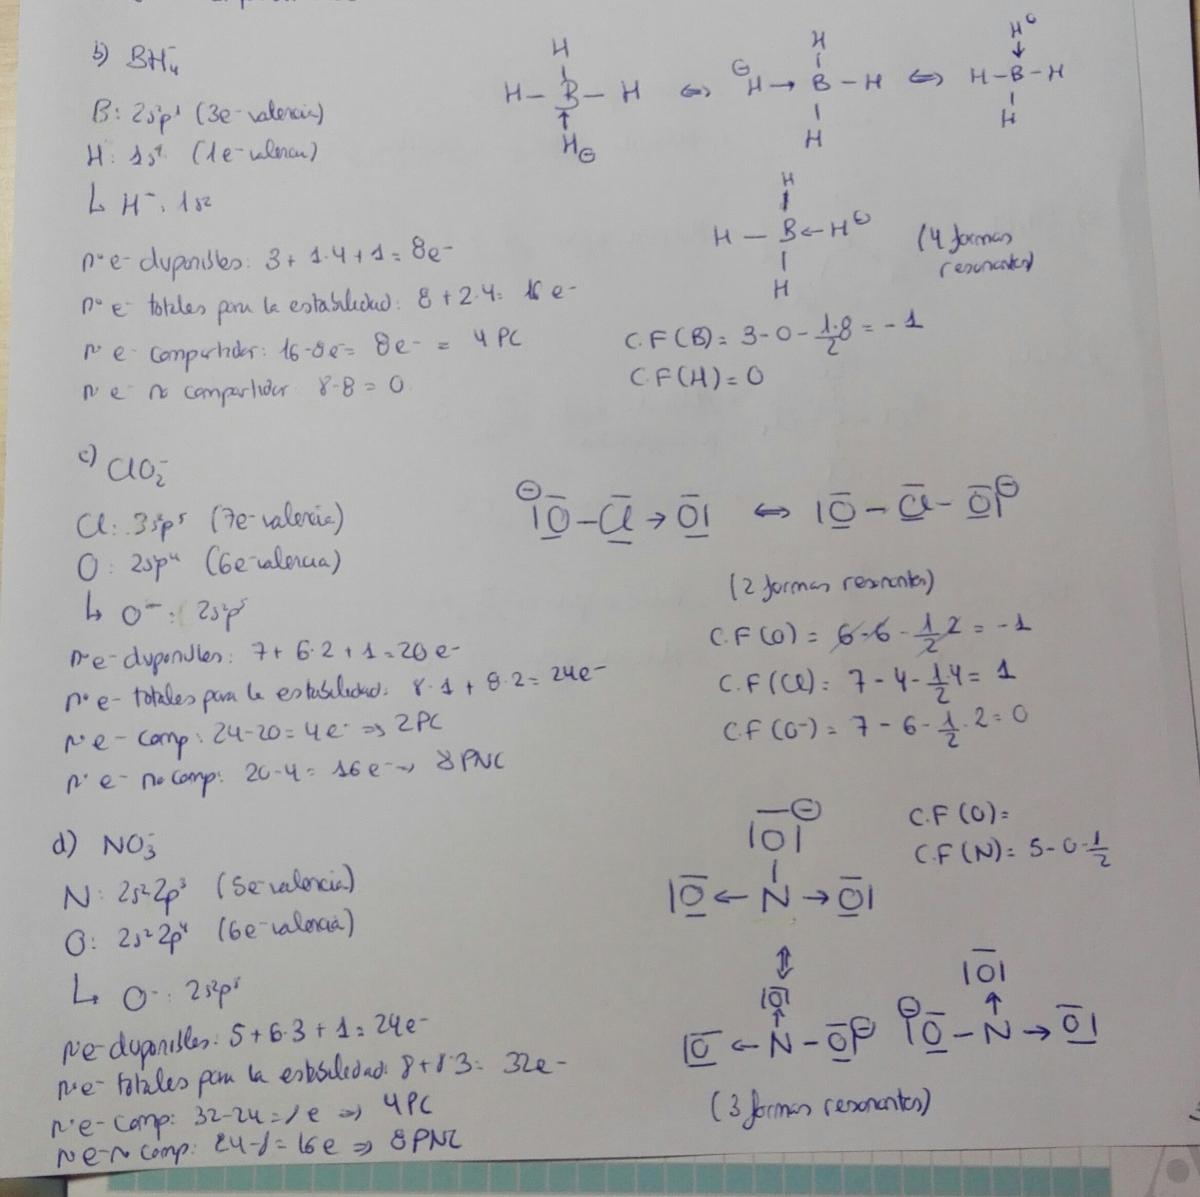 b) BH₄⁻
B: 2s²p¹ (3e⁻ valencia)
H: 1s¹ (1e⁻ valencia)
↳ H⁻: 1s²
nº e⁻ disponibles: 3 + 1·4 + 1 = 8e⁻
nº e⁻ totales para la estabilidad: 8 + 2·4 = 16 e⁻
nº e⁻ compartidos: 16-8e⁻ = 8e⁻ = 4 PC
nº e⁻ no compartidos 8-8 = 0
H
H – B – H ⇔ ⊖H → B – H ⇔ H – B – H
H⊖
H
H
H⊖
H
H
H – B ← H⊖
H
(4 formas
resonantes)
C.F(B) = 3-0-1/2·8 = -1
C.F(H) = 0
c) ClO₂⁻
Cl: 3s²p⁵ (7e⁻ valencia)
O: 2s²p⁴ (6e⁻ valencia)
↳ O⁻: 2s²p⁵
nº e⁻ disponibles: 7 + 6·2 + 1 = 20 e⁻
nº e⁻ totales para la estabilidad: 8·1 + 8·2 = 24e⁻
nº e⁻ comp: 24-20 = 4e⁻ ⇒ 2PC
nº e⁻ no comp: 20-4 = 16e⁻ → 8PNC
⊖ |O – Cl → O| ⇔ |O – Cl – O|⊖
(2 formas resonantes)
C.F(O) = 6-6-1/2 2 = -1
C.F(Cl) = 7-4-1/2 4 = 1
C.F(O⁻) = 7-6-1/2·2 = 0
d) NO₃⁻
N: 2s²2p³ (5e⁻ valencia)
O: 2s²2p⁴ (6e⁻ valencia)
↳ O⁻: 2s²p⁵
nº e⁻ disponibles: 5 + 6·3 + 1 = 24e⁻
nº e⁻ totales para la estabilidad: 8 + 8·3 = 32e⁻
nº e⁻ comp: 32-24 = 8e ⇒ 4PC
nº e⁻ no comp: 24-8 = 16e ⇒ 8PNC
C.F(O) =
C.F(N) = 5-0-1/2
|O|⊖
|O ← N → O|
⇕
|O|
|O ← N – O|⊖
|O|
⊖|O – N → O|
(3 formas resonantes)